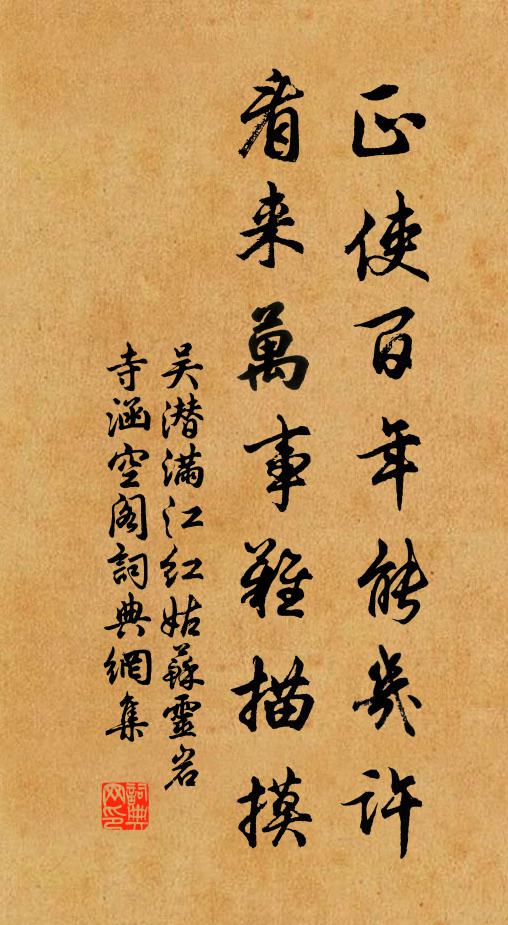 正使百年能几许
看来萬事難描摸
吴潜满江红姑蘇靈岩
寺涵空阁詞典網集
詞典
网印